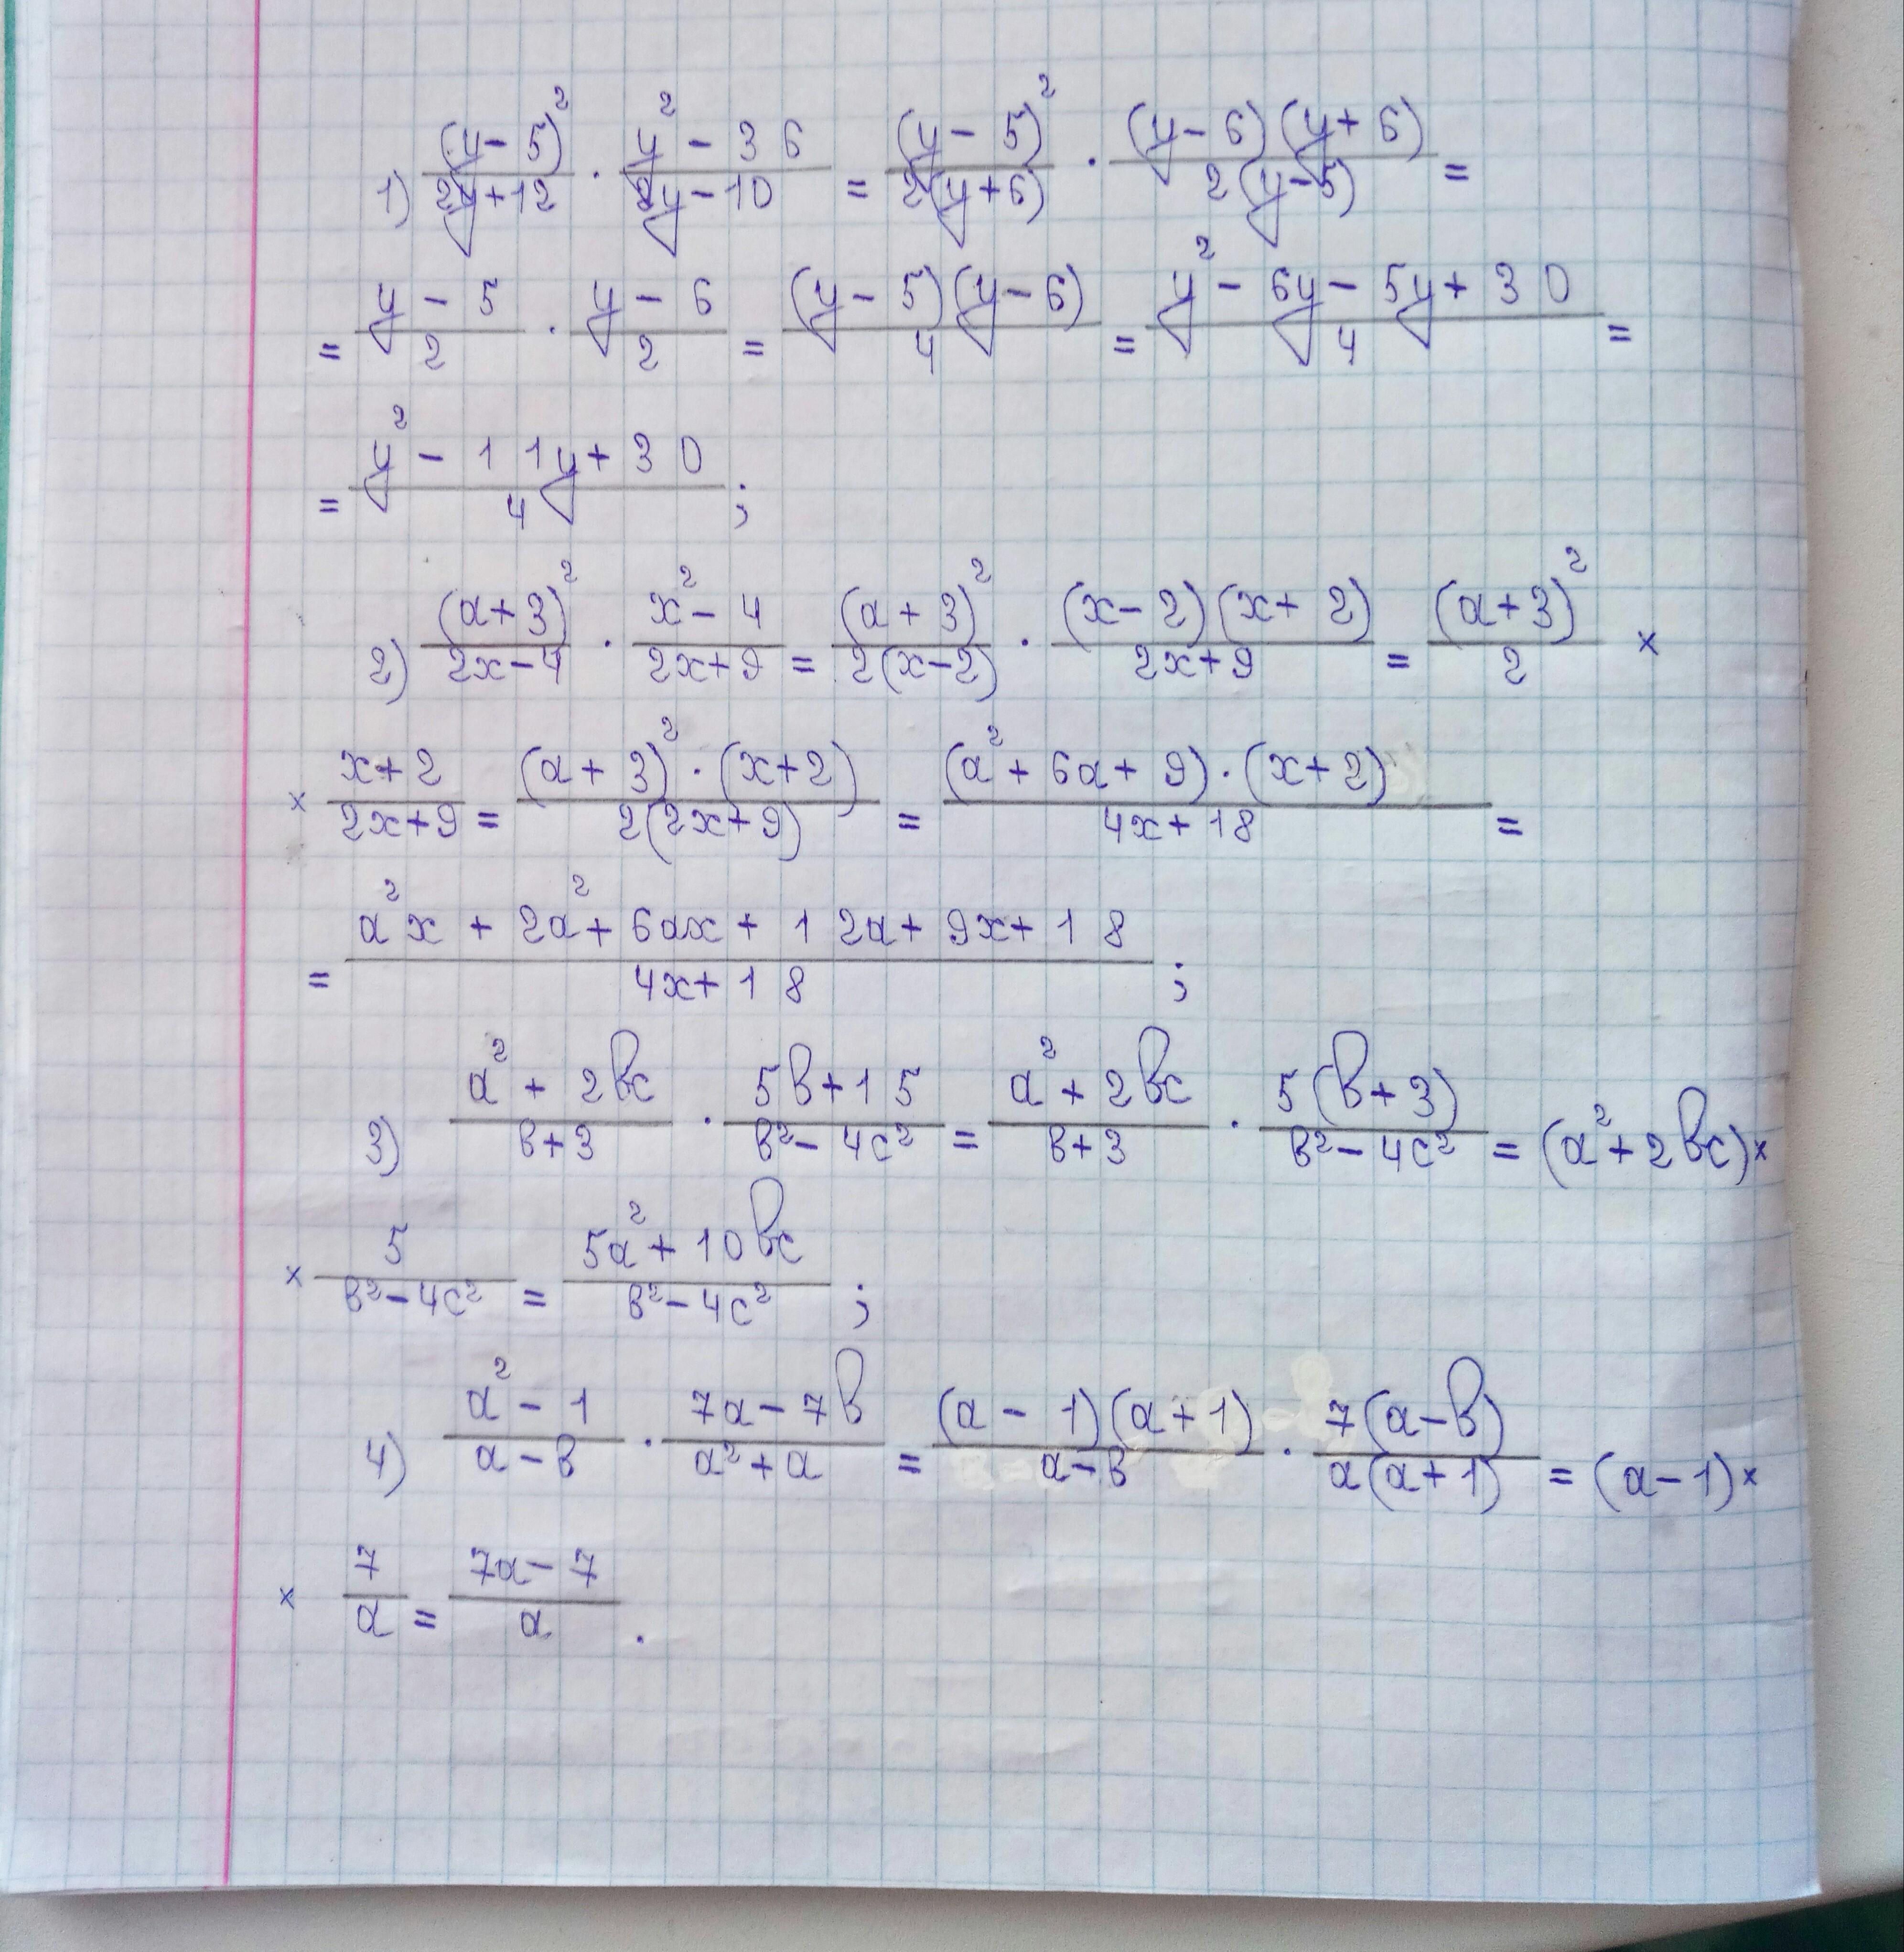 1) (y-5)²/(2y+12) · (y²-36)/(2y-10) = (y-5)²/(2(y+6)) · ((y-6)(y+6))/(2(y-5)) =
= (y-5)/2 · (y-6)/2 = ((y-5)(y-6))/4 = (y²-6y-5y+30)/4 =
= (y²-11y+30)/4 ;
2) (a+3)²/(2x-4) · (x²-4)/(2x+9) = (a+3)²/(2(x-2)) · ((x-2)(x+2))/(2x+9) = (a+3)²/2 ×
× (x+2)/(2x+9) = ((a+3)²·(x+2))/(2(2x+9)) = ((a²+6a+9)·(x+2))/(4x+18) =
= (a²x+2a²+6ax+12a+9x+18)/(4x+18) ;
3) (a²+2вc)/(в+3) · (5в+15)/(в²-4c²) = (a²+2вc)/(в+3) · (5(в+3))/(в²-4c²) = (a²+2вc) ×
× 5/(в²-4c²) = (5a²+10вc)/(в²-4c²) ;
4) (a²-1)/(a-в) · (7a-7в)/(a²+a) = ((a-1)(a+1))/(a-в) · (7(a-в))/(a(a+1)) = (a-1) ×
× 7/a = (7a-7)/a .